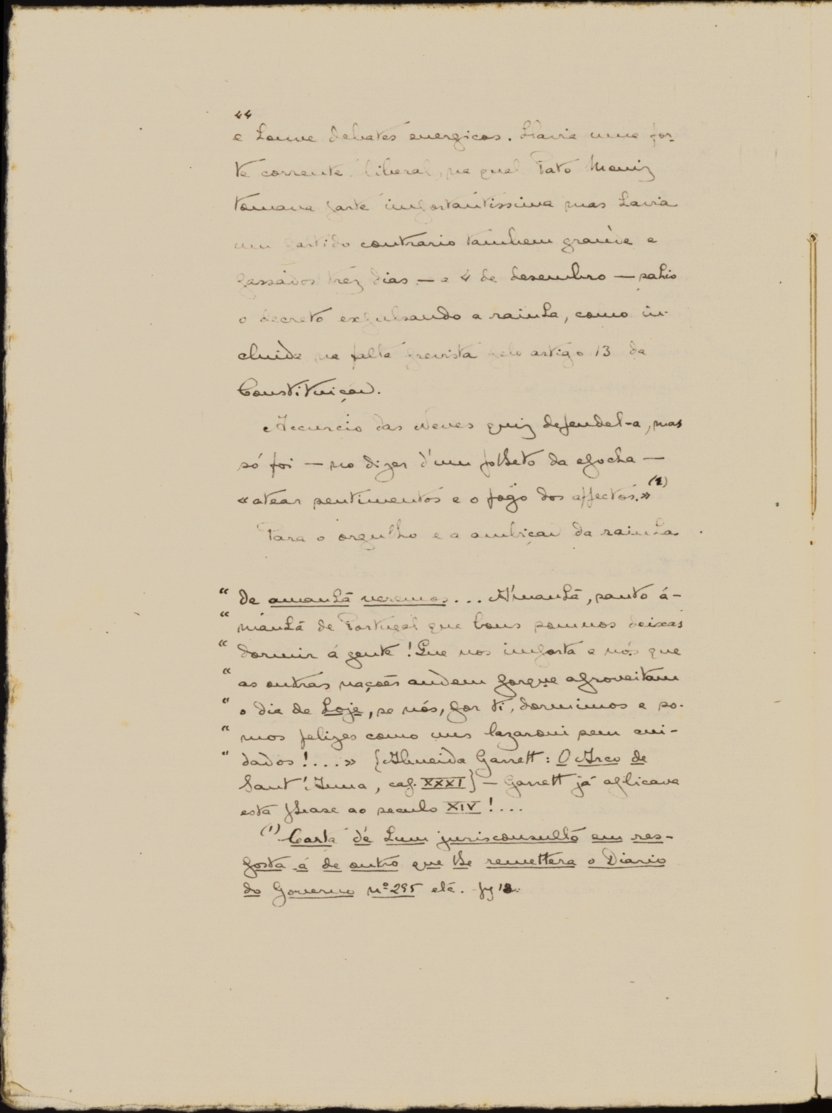 44
e houve debates energicos. Havia uma for-
te corrente liberal, na qual Pato Moniz
tomava parte importantissima mas havia
um partido contrario tambem grande e
passados trez dias — a 4 de desembro — sahio
o decreto expulsando a rainha, como in-
cluida na falta prevista pelo artigo 13 da
Constituiçaõ.
Accurcio das Neves quiz defendel-a, mas
só foi — no dizer d'um folheto da epocha —
«atear sentimentos e o fogo dos affectos.» (1)
Para o orgulho e a ambiçaõ da rainha
" de amanhã veremos... A'manhã, santo á-
" manhã de Portugal que bons somnos deixas
" dormir á gente! Que nos importa a nós que
" as outras nações andem porque aproveitam
" o dia de hoje, se nós, por ti, dormimos e so-
" mos felizes como uns lazaroni sem cui-
" dados!...» {Almeida Garrett: O Arco de
Sant'Anna, cap. XXXI} — Garrett já aplicava
esta phrase ao seculo XIV!...
(1) Carta de hum jurisconsulto em res-
posta á de outro que lhe remettera o Diario
do Governo nº 295 etc. pg 12.